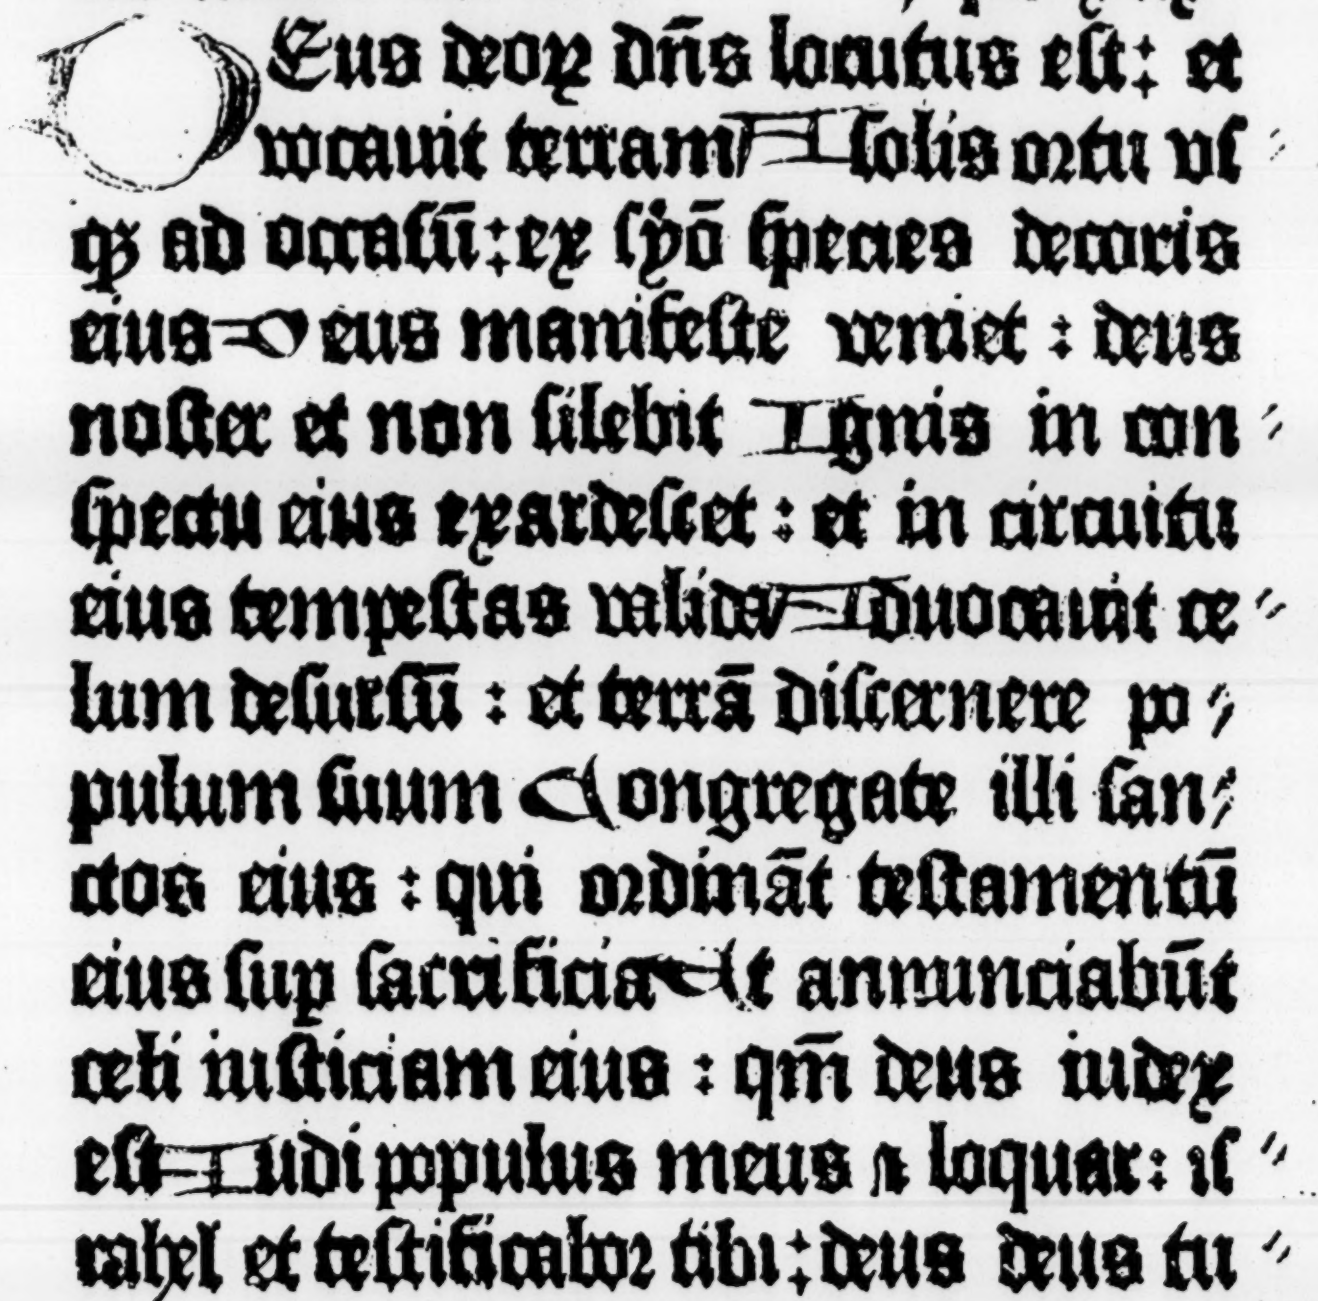 DEus deoꝝ dñs locutus est: et
vocauit terram A solis ortu vs⸗
qꝫ ad occasū: ex syō species decoris
eius Deus manifeste veniet : deus
noster et non silebit Ignis in con⸗
spectu eius exardescet : et in circuitu
eius tempestas valida Aduocauit ce⸗
lum desursū : et terrā discernere po⸗
pulum suum Congregate illi san⸗
ctos eius : qui ordināt testamentū
eius suꝑ sacrificia Et annunciabūt
celi iusticiam eius : qm̄ deus iudex
est Audi populus meus ⁊ loquar: is⸗
rahel et testificabor tibi: deus deus tu⸗